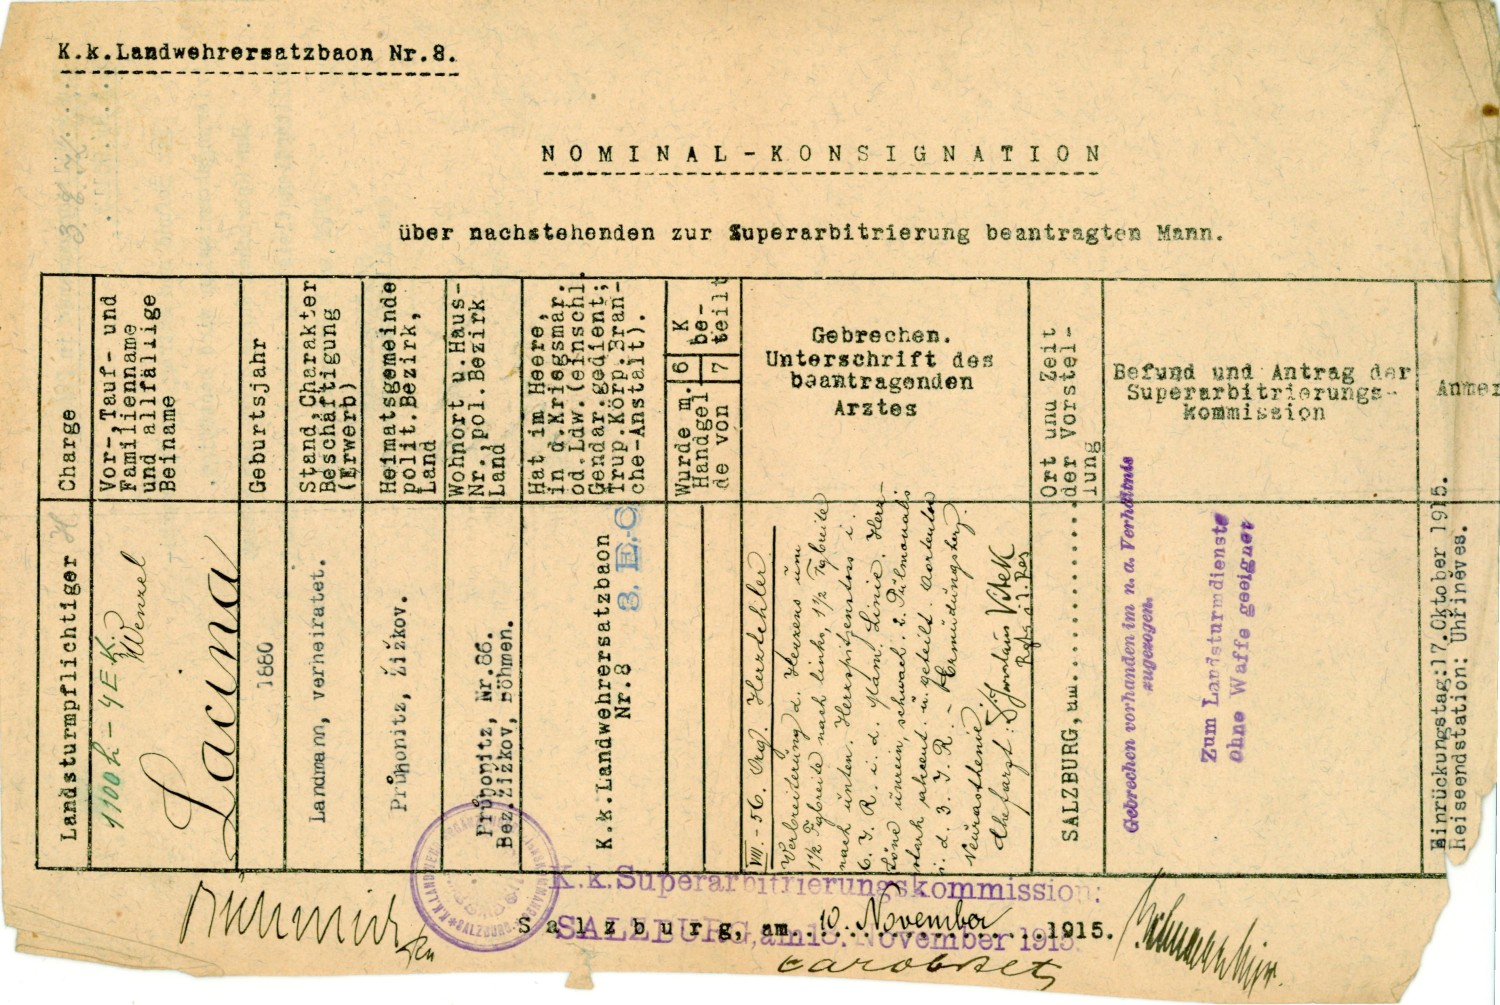 K.k.Landwehrersatzbaon Nr.8.
NOMINAL-KONSIGNATION
über nachstehenden zur Superarbitrierung beantragten Mann.
Charge
Vor-,Tauf- und
Familienname
und allfällige
Beiname
Geburtsjahr
Stand,Charakter
Beschäftigung
(Erwerb)
Heimatsgemeinde
polit.Bezirk,
Land
Wohnort u.Haus-
Nr.,pol.Bezirk
Land
Hat im Heere,
in d.Kriegsmar.
od.Ldw.(einschl
Gendar.gedient;
Trup.Körp.Bran-
che-Anstalt).
Wurde m.
Handgel
de von
6
7
K
be-
teilt
Gebrechen.
Unterschrift des
beantragenden
Arztes
Ort und Zeit
der Vorstel-
lung
Befund und Antrag der
Superarbitrierungs-
kommission
Anmer
Landsturmpflichtiger
Wenzel
Lacina
1880
Landmann, verheiratet.
Průhonitz, Žižkov.
Průhonitz, Nr.86.
Bez.Žižkov, Böhmen.
K.k.Landwehrersatzbaon
Nr.8
3. E.C
VIII.-56. Org. Herzfehler
Verbreiterung d. Herzens um
1½ Fgbreite nach links, 1½ Fgbreite
nach unten. Herzspitzenstoss i.
6. I. R. i. d. Mam. Linie. Herz-
töne unrein, schwach. 2. Pulmonalis
stark akcent. u. geteilt. Aortenton
i. d. 3. I. R. - Ermüdungsherz.
Neurasthenie.
Chefarzt: Vitek
SALZBURG, am
Gebrechen vorhanden im n. a. Verhältnis
zugezogen.
Zum Landsturmdienste
Ohne Waffe geeignet
Einrückungstag:17.Oktober 1915.
Reiseendstation: Uhřiněves.
K.k.Superarbitrierungskommission:
Salzburg, am 10. November 1915.
SALZBURG, am 10. November 1915.